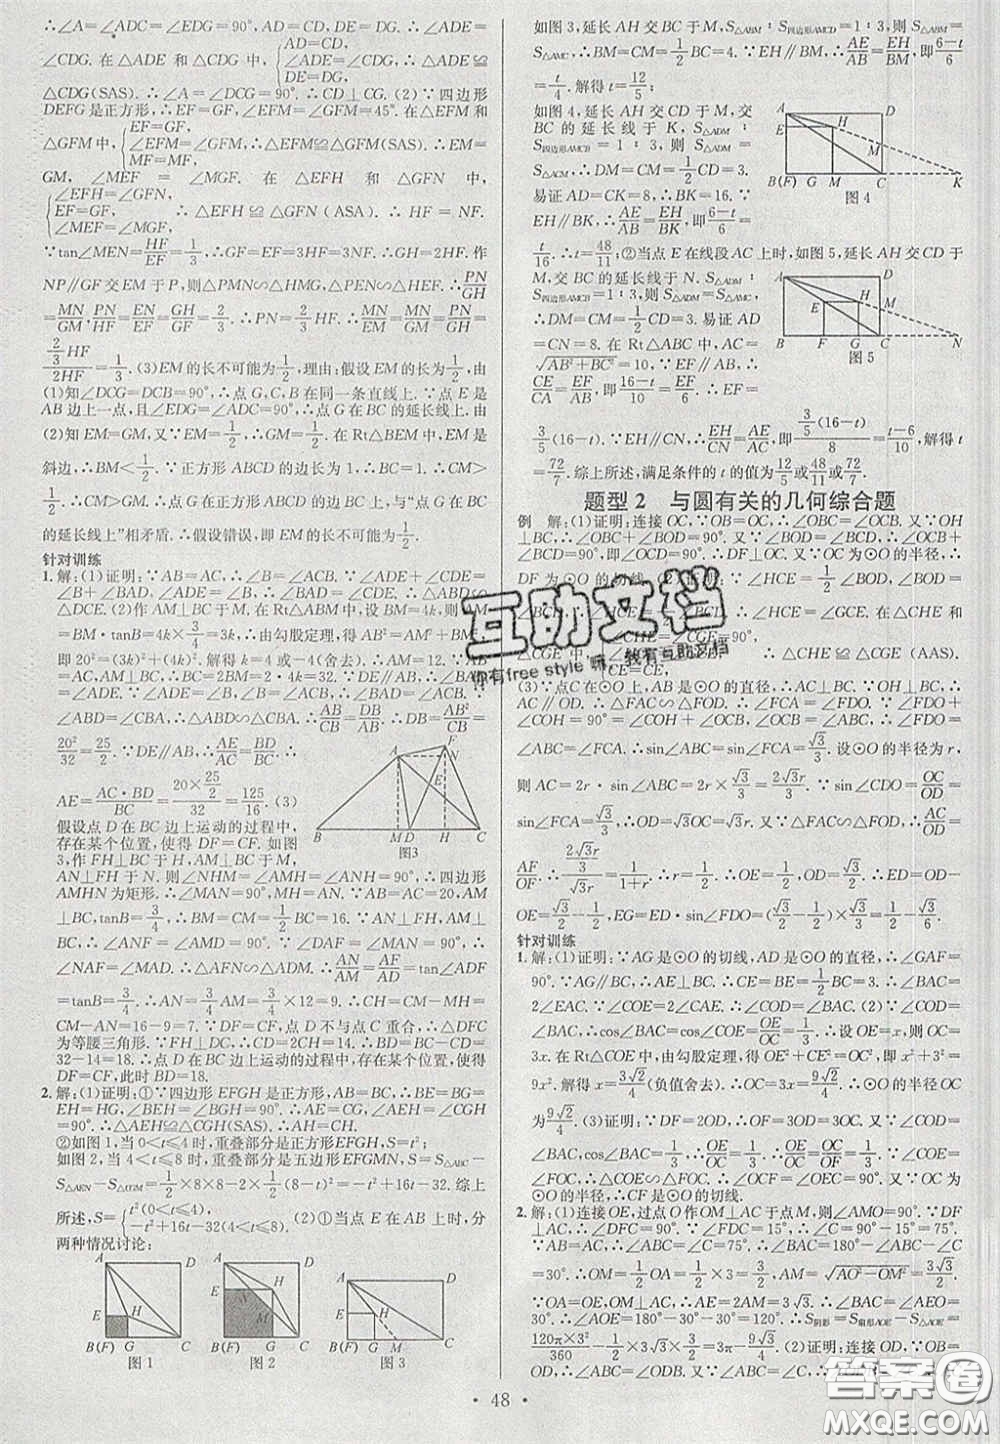 ∴∠A=∠ADC=∠EDG=90°,AD=CD,DE=DG.∴∠ADE=
∠CDG. 在△ADE 和△CDG 中,{AD=CD, ∠ADE=∠CDG, DE=DG. ∴△ADE≌
△CDG(SAS).∴∠A=∠DCG=90°.∴CD⊥CG.(2)∵四边形
DEFG是正方形,∴EF=GF,∠EFM=∠GFM=45°.在△EFM和
△GFM中,{EF=GF, ∠EFM=∠GFM, MF=MF, ∴△EFM≌△GFM(SAS).∴EM=
GM, ∠MEF=∠MGF. 在△EFH 和△GFN 中,
{∠EFH=∠GFN, EF=GF, ∠MEF=∠MGF, ∴△EFH≌△GFN(ASA).∴HF=NF.
∵tan∠MEN=HF/EF=1/3,∴GF=EF=3HF=3NF.∴GH=2HF. 作
NP∥GF交EM于P,则△PMN∽△HMG,△PEN∽△HEF.∴PN/GH
=MN/GM,PN/HF=EN/EF=GH/GF=2/3.∴PN=2/3HF.∴MN/EM=MN/GM=PN/GH=
(2/3HF)/2HF=1/3.(3)EM的长不可能为1/2,理由:假设EM的长为1/2,由
(1)知∠DCG=∠DCB=90°,∴点G,C,B在同一条直线上.∵点E是
AB边上一点,且∠EDG=∠ADC=90°,∴点G在BC的延长线上.由
(2)知EM=GM,又∵EM=1/2,∴GM=1/2.在Rt△BEM中,EM是
斜边,∴BM<1/2.∵正方形ABCD的边长为1,∴BC=1.∴CM>1/2.
∴CM>GM.∴点G在正方形ABCD的BC边上,与“点G在BC
的延长线上”相矛盾.∴假设错误,即EM的长不可能为1/2.
针对训练
1.解:(1)证明:∵AB=AC,∴∠B=∠ACB.∵∠ADE+∠CDE=
∠B+∠BAD,∠ADE=∠B,∴∠BAD=∠CDE.∴△BAD∽
△DCE.(2)作AM⊥BC于M.在Rt△ABM中,设BM=4k,则AM
=BM·tanB=4k×3/4=3k.由勾股定理,得AB²=AM²+BM²,
即20²=(3k)²+(4k)².解得k=4或-4(舍去).∴AM=12.∵AB
=AC,AM⊥BC,∴BC=2BM=2·4k=32.∵DE∥AB,∴∠BAD
=∠ADE.∵∠ADE=∠B,∠B=∠ACB,∴∠BAD=∠ACB.∵
∠ABD=∠CBA,∴△ABD∽△CBA.∴AB/CB=DB/AB.∴DB=AB²/CB=
20²/32=25/2.∵DE∥AB,∴AE/AC=BD/BC.∴
AE=AC·BD/BC=(20×25/2)/32=125/16.(3)
假设点D在BC边上运动的过程中,
存在某个位置,使得DF=CF.如图
3,作FH⊥BC于H,AM⊥BC于M,
AN⊥FH于N.则∠NHM=∠AMH=∠ANH=90°.∴四边形
AMHN为矩形.∴∠MAN=90°,MH=AN.∵AB=AC=20,AM
⊥BC,tanB=3/4,∴BM=CM=1/2BC=16.∵AN⊥FH,AM⊥
BC,∴∠ANF=∠AMD=90°.∵∠DAF=90°=∠MAN,∴
∠NAF=∠MAD.∴△AFN∽△ADM.∴AN/AM=AF/AD=tan∠ADF
=tanB=3/4.∴AN=3/4AM=3/4×12=9.∴CH=CM-MH=
CM-AN=16-9=7.∵DF=CF,点D不与点C重合,∴△DFC
为等腰三角形.∵FH⊥DC,∴CD=2CH=14.∴BD=BC-CD=
32-14=18.∴点D在BC边上运动的过程中,存在某个位置,使得
DF=CF,此时BD=18.
2.解:(1)证明:①∵四边形EFGH是正方形,AB=BC,∴BE=BG=
EH=HG,∠BEH=∠BGH=90°.∴AE=CG,∠AEH=∠CGH
=90°.∴△AEH≌△CGH(SAS).∴AH=CH.
②如图1,当0<t≤4时,重叠部分是正方形EFGH,S=t²;
如图2,当4<t≤8时,重叠部分是五边形EFGMN,S=S△ABC-
S△AEN-S△CGM=1/2×8×8-2×1/2(8-t)²=-t²+16t-32.综上
所述,S={t²(0<t≤4), -t²+16t-32(4<t≤8).(2)①当点E在AB上时,分
两种情况讨论:
A D E H B(F) G C 图1
A D E H B(F) G C 图2
A D E H B(F) G M C 图3
A B M D H C E F N 图3
如图3,延长AH交BC于M,S△ABM∶S四边形AMCD=1∶3,则S△ABM=
S△ACM.∴BM=CM=1/2BC=4.∵EH∥BM,∴AE/AB=EH/BM,即(6-t)/6
=t/4.解得t=12/5;
如图4,延长AH交CD于M,交
BC的延长线于K,S△ADM∶
S四边形ABCM=1∶3,则S△ADM=
S△ACM.∴DM=CM=1/2CD=3.
易证AD=CK=8,∴BK=16.∵
EH∥BK,∴AE/AB=EH/BK,即(6-t)/6=
t/16.∴t=48/11;②当点E在线段AC上时,如图5,延长AH交CD于
M,交BC的延长线于N.S△ADM∶
S四边形ABCM=1∶3,则S△ADM=S△ACM.
∴DM=CM=1/2CD=3.易证AD
=CN=8.在Rt△ABC中,AC=
√(AB²+BC²)=10,∵EF∥AB,∴
CE/CA=EF/AB,即(16-t)/10=EF/6.∴EF=
3/5(16-t).∵EH∥CN,∴EH/CN=AE/AC,即(3/5(16-t))/8=(t-6)/10,解得t
=72/7.综上所述,满足条件的t的值为12/5或48/11或72/7.
A D E H M B(F) G M C K 图4
A D E H M B F G C N 图5
题型2 与圆有关的几何综合题
例 解:(1)证明:连接OC,∵OB=OC,∴∠OBC=∠OCB.又∵OH
⊥BC,∴∠DFC=∠OCB=90°.∴DF⊥OC.又∵OC为⊙O的半径,∴
DF为⊙O的切线.
∠HCE=1/2∠BOD,∠BOD
∴∠HCE=∠GCE.在△CHE和
∠CGE=90°,
CE=CE, ∴△CHE≌△CGE(AAS).
(3)∵点C在⊙O上,AB是⊙O的直径,∴AC⊥BC.∵OH⊥BC,∴
AC∥OD.∴△FAC∽△FOD.∴∠FCA=∠FDO.∵∠FOC+
∠COH=90°,∠FDO+∠COH=90°,∴∠FOC=∠FDO.∴
∠ABC=∠FCA.∴sin∠ABC=sin∠FCA=√3/3.设⊙O的半径为r,
则AC=2r·sin∠ABC=2r×√3/3=2√3r/3.∵sin∠CDO=OC/OD=
sin∠FCA=√3/3,∴OD=√3OC=√3r.又∵△FAC∽△FOD,∴
AF/OF=(2√3r/3)/(√3r),即1/(1+r)=1/2.∴r=1/2.∴ED=OD-
OE=√3/2-1/2,EG=ED·sin∠FDO=(√3/2-1/2)×√3/3=1/2-√3/6.
针对训练
1.解:(1)证明:∵AG是⊙O的切线,AD是⊙O的直径,∴∠GAF=
90°.∵AG∥BC,∴AE⊥BC.∴CE=BE=1/2BC=3.∴∠BAC=
2∠EAC.∵∠COE=2∠CAE,∴∠COD=∠BAC.(2)∵∠COD=
∠BAC,∴cos∠BAC=cos∠COE=OE/OC=1/3.∴设OE=x,则OC=
3x.在Rt△COE中,由勾股定理,得OE²+CE²=OC²,即x²+3²=
9x².解得x=3√2/4(负值舍去).∴OC=3x=9√2/4.∴⊙O的半径长
为9√2/4.(3)证明:∵DF=2OD,∴OF=3OD=3OC.又∵∠COD=
∠BAC,cos∠BAC=1/3,∴OE/OC=1/3.∴OE/OC=OC/OF=1/3.又∵∠COE=
∠FOC,∴△COE∽△FOC.∴∠OCF=∠OEC=90°.又∵OC为
⊙O的半径,∴CF是⊙O的切线.
2.解:(1)连接OE,过点O作OM⊥AC于点M,则∠AMO=90°.∵
DF⊥AC,∴∠DFC=90°.∵∠FDC=15°,∴∠C=90°-15°=75°.
∵AB=AC,∴∠ABC=∠C=75°.∴∠BAC=180°-∠ABC-∠C
=30°.∴OM=1/2AO=1/2×3=3/2,AM=√(AO²-OM²)=3√3/2.
∵OA=OE,OM⊥AC,∴AE=2AM=3√3.∵∠BAC=∠AEO=
30°,∴∠AOE=180°-30°-30°=120°.∴S阴影=S扇形AOE-S△AOE=
120π×3²/360-1/2×3√3×3/2=3π-9√3/4.(2)证明:连接OD,∵OB=
OD,∴∠ABC=∠ODB.∵AB=AC,∴∠ABC=∠C.∴∠ODB
互助文档
你有free style 嘛,我有互助文档
答案圈
MXQE.COM
· 48 ·